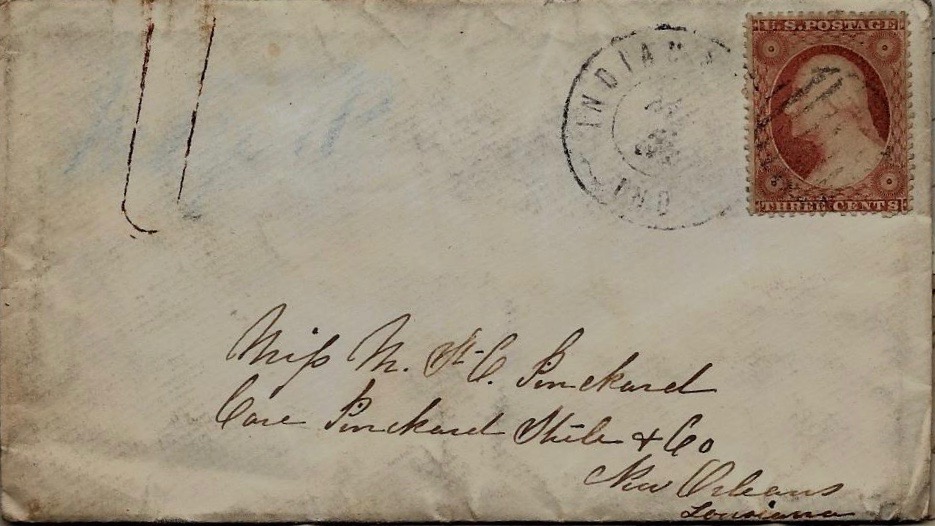 U.S. POSTAGE
INDIAN
IND
THREE CENTS
Miss M. St. C. Pinckard
Care Pinckard Steele & Co
New Orleans
Louisiana